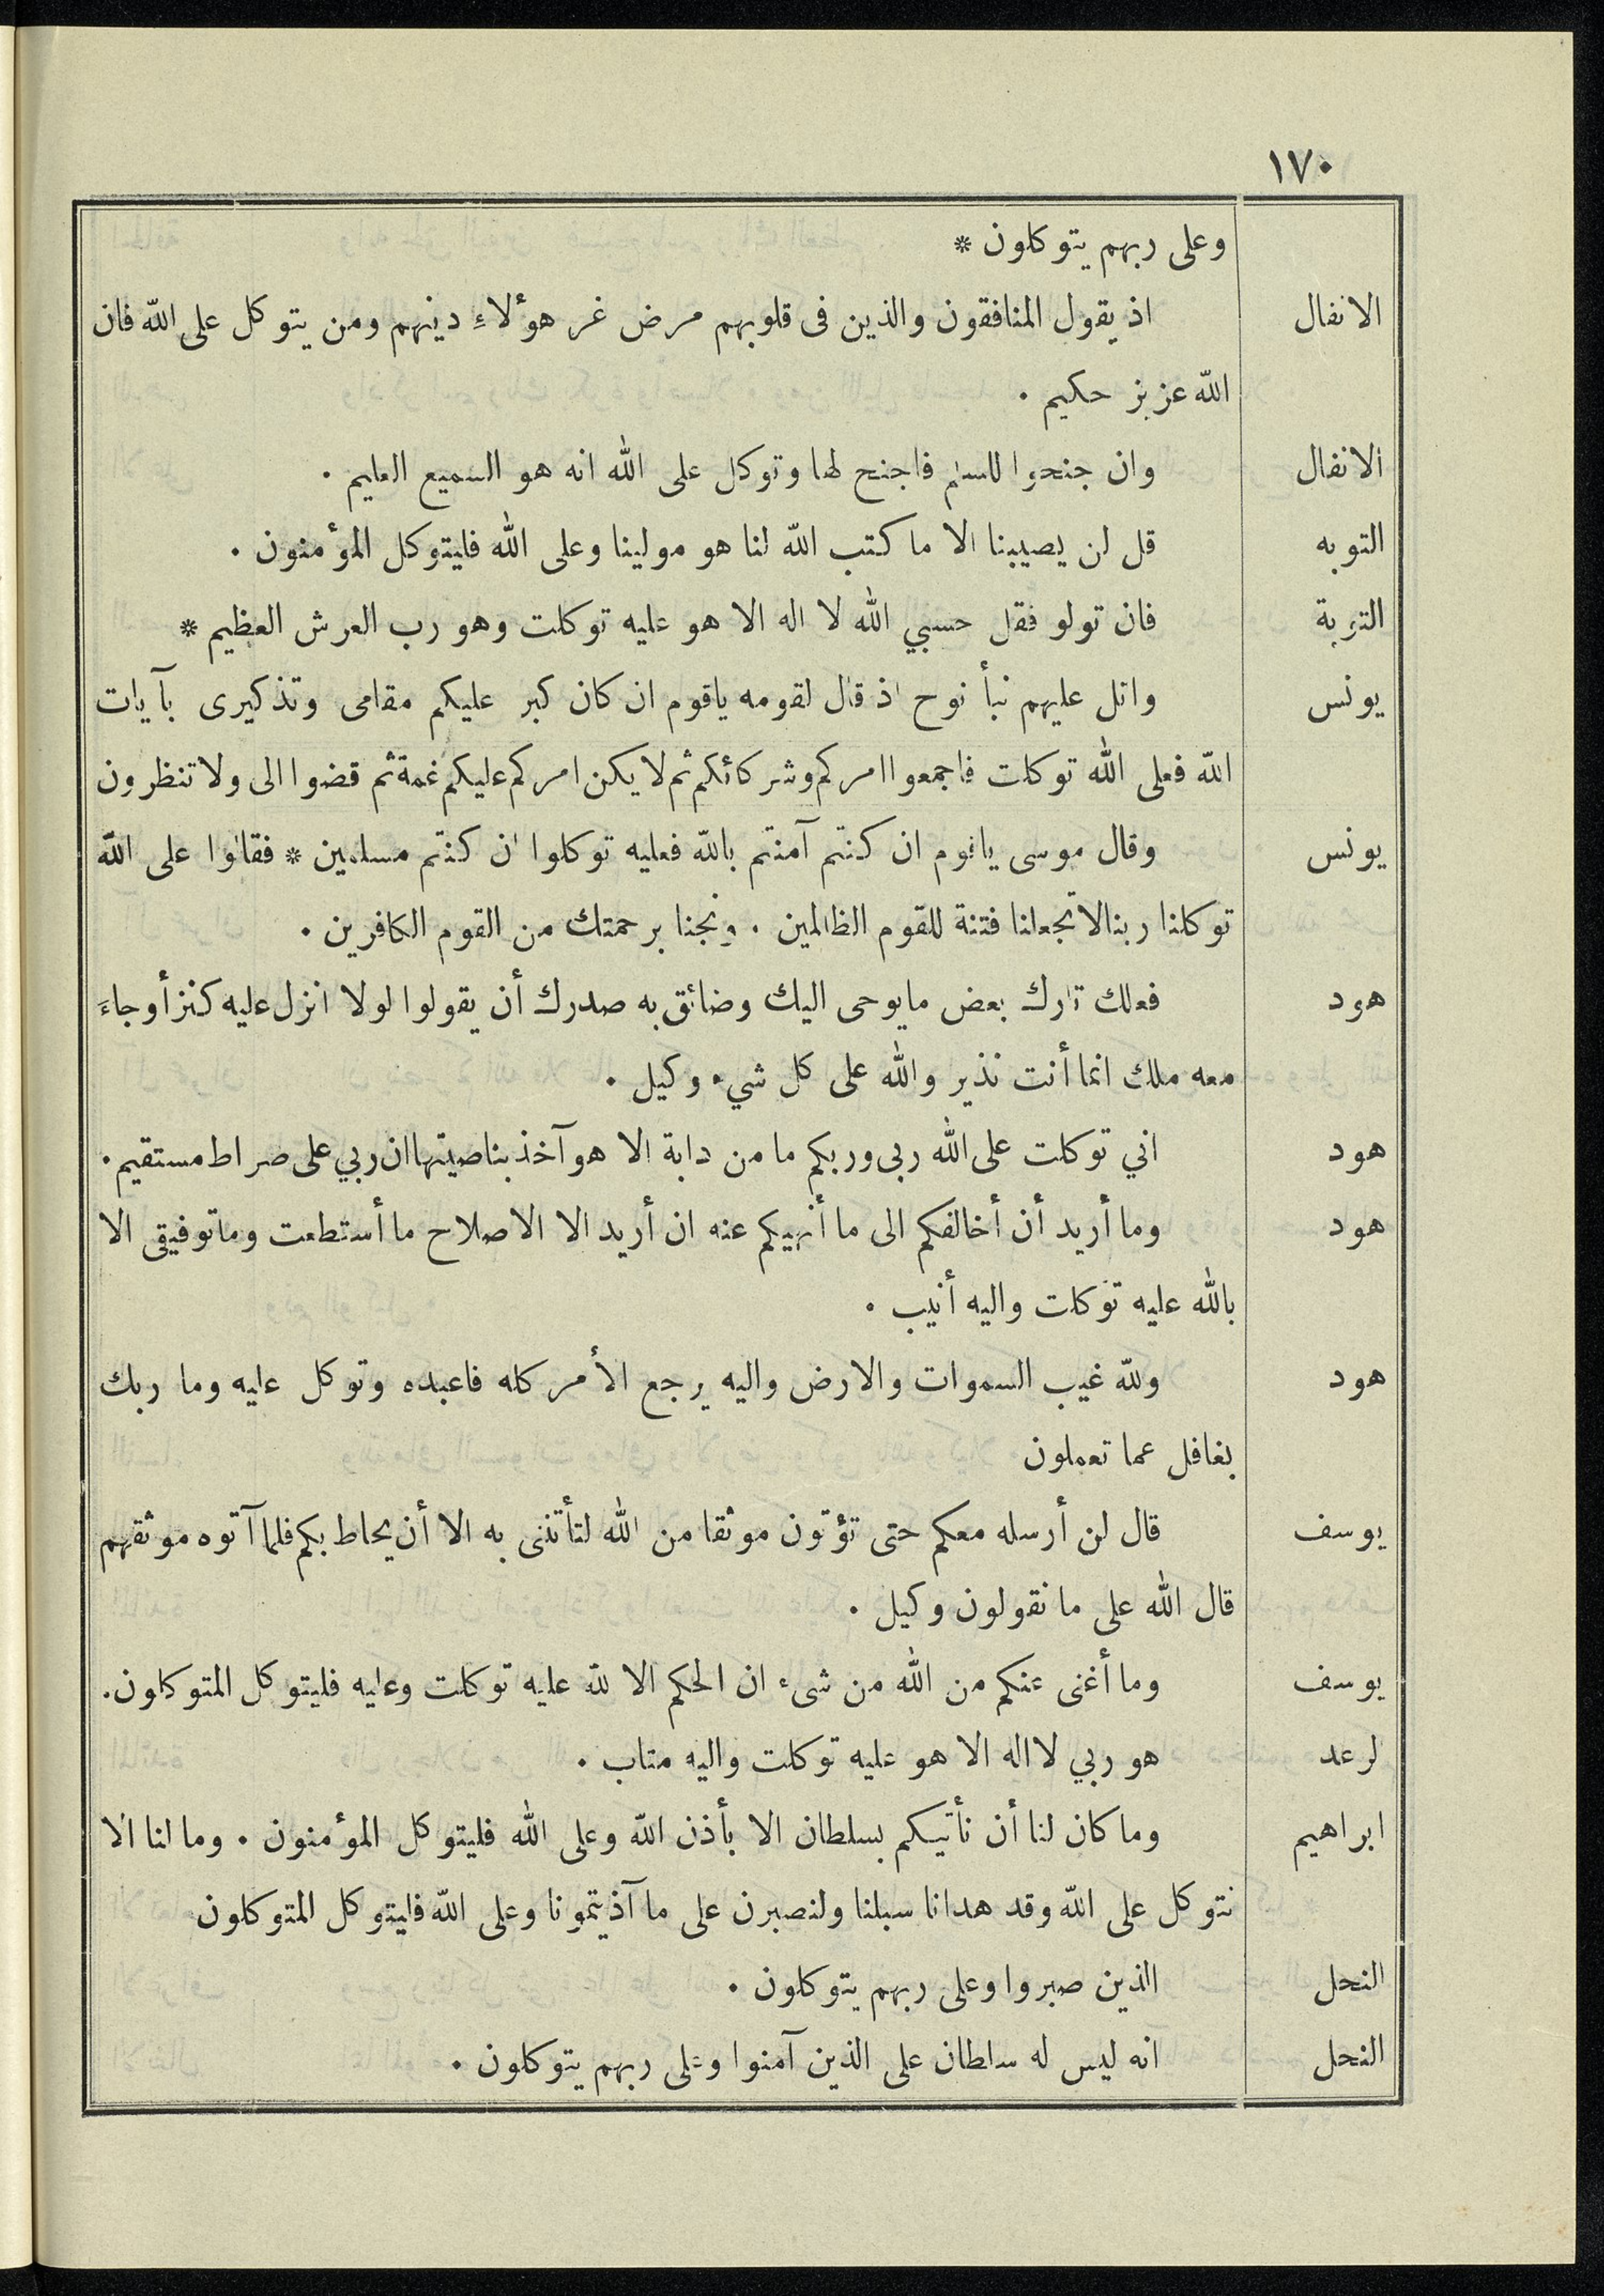 ١٧٠
وعلى ربهم يتوكلون *
الانفال اذ يقول المنافقون والذين فى قلوبهم مرض غر هؤلاء دينهم ومن يتوكل على الله فان
الله عزيز حكيم .
الانفال وان جنحوا للسلم فاجنح لها وتوكل على الله انه هو السميع العليم .
التوبه قل لن يصيبنا الا ما كتب الله لنا هو مولينا وعلى الله فليتوكل المؤمنون .
التوبة فان تولو فقل حسبي الله لا اله الا هو عليه توكلت وهو رب العرش العظيم *
يونس واتل عليهم نبأ نوح اذ قال لقومه ياقوم ان كان كبر عليكم مقامى وتذكيرى بآيات
الله فعلى الله توكلت فاجمعوا امركم وشركائكم ثم لا يكن امركم عليكم غمة ثم قضوا الى ولا تنظرون
يونس وقال موسى ياقوم ان كنتم آمنتم بالله فعليه توكلوا ان كنتم مسلمين * فقالوا على الله
توكلنا ربنا لا تجعلنا فتنة للقوم الظالمين . ونجنا برحمتك من القوم الكافرين .
هود فعلك تارك بعض مايوحى اليك وضائق به صدرك أن يقولوا لولا انزل عليه كنز أو جاء
معه ملك انما أنت نذير والله على كل شيء وكيل .
هود اني توكلت على الله ربى وربكم ما من دابة الا هو آخذ بناصيتها ان ربي على صراط مستقيم .
هود وما أريد أن أخالفكم الى ما أنهيكم عنه ان أريد الا الاصلاح ما أستطعت وماتوفيقى الا
بالله عليه توكلت واليه أنيب .
هود ولله غيب السموات والارض واليه يرجع الأمر كله فاعبده وتوكل عليه وما ربك
بغافل عما تعملون
يوسف قال لن أرسله معكم حتى تؤتون موثقا من الله لتأتننى به الا أن يحاط بكم فلما آتوه موثقهم
قال الله على ما نقولون وكيل .
يوسف وما أغنى عنكم من الله من شىء ان الحكم الا لله عليه توكلت وعليه فليتوكل المتوكلون .
لرعد هو ربي لا اله الا هو عليه توكلت واليه متاب .
ابراهيم وما كان لنا أن نأتيكم بسلطان الا بأذن الله وعلى الله فليتوكل المؤمنون . وما لنا الا
نتوكل على الله وقد هدانا سبلنا ولنصبرن على ما آذيتمونا وعلى الله فليتوكل المتوكلون
النحل الذين صبروا وعلى ربهم يتوكلون .
النحل انه ليس له سلطان على الذين آمنوا وعلى ربهم يتوكلون .